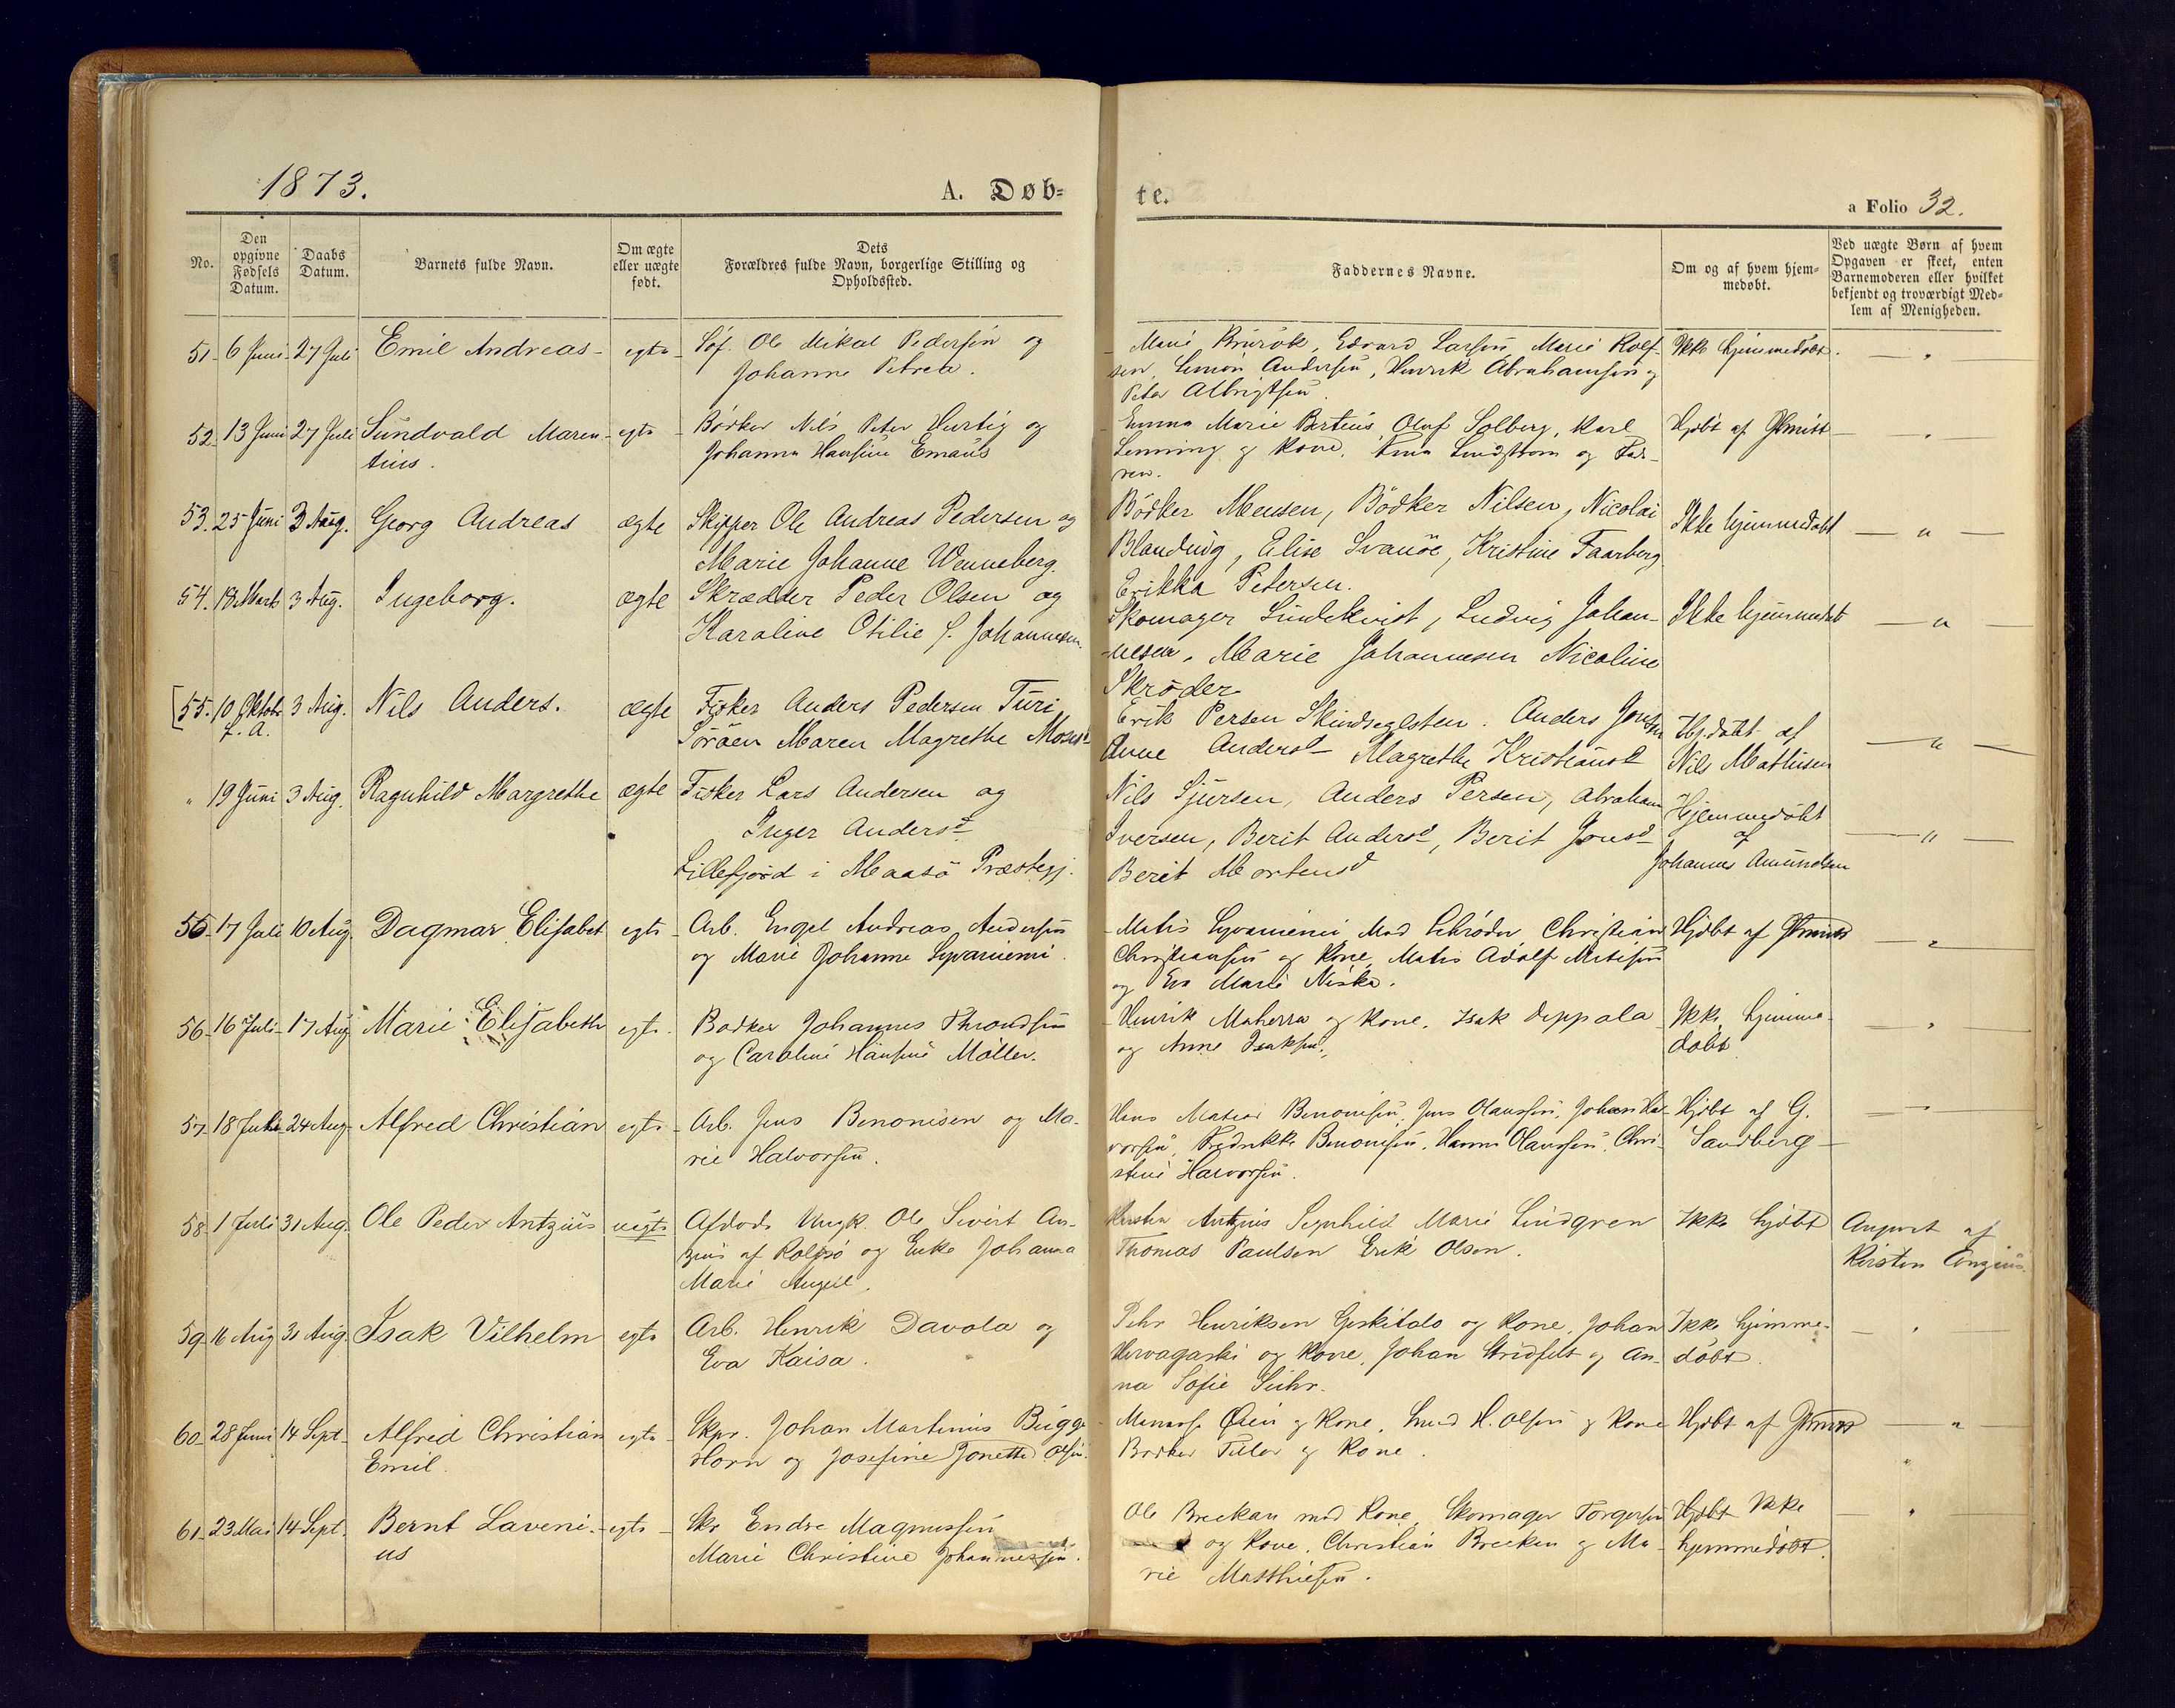 1873.
A. Døb-
te.
a Folio 32.
No.
Den opgivne Fødsels Datum.
Daabs Datum.
Barnets fulde Navn.
Om ægte eller uægte født.
Dets Forældres fulde Navn, borgerlige Stilling og Opholdssted.
Faddernes Navne.
Om og af hvem hjem-
medøbt.
Ved uægte Børn af hvem
Opgaven er skeet, enten
Barnemoderen eller hvilket
bekjendt og troværdigt Med-
lem af Menigheden.
51 6 Juni 27 Juli Emil Andreas egte Ole Mikal Pedersen og
Johanne Petrea.
Marie Edvard Larsen Marie Rolf-
sen, Simon Andersen, Henrik Abrahamsen og
Peter Albrigtsen.
Ikke hjemmedøbt.
52 13 Juni 27 Juli Sundvald Maren-
tius.
egte Bødker Nils Peter Hurtig og
Johanna Hansine Emaus
Emma Marie Olaf Solberg, Karl
Lenning og Kone, og Fad-
ren.
Hjdbt af
53. 25 Juni 3 Aug. Georg Andreas ægte Skipper Ole Andreas Pedersen og
Marie Johanne Wenneberg.
Bödker Mensen, Bödker Nilsen, Nicolai
Elise Svanöe, Kristine Taarberg
Erikka Petersen.
Ikke hjemmedøbt
54. 18 Marts 3 Aug. Ingeborg. ægte Skrædder Peder Olsen og
Karoline Otilie f. Johannesen.
Skomager Lindekvist, Ludvig Johan-
nesen, Marie Johannesen Nicoline
Skröder
Ikke hjemmedøbt
[55. 10 Oktob. f. A. 3 Aug. Nils Anders. ægte Fisker Anders Pedersen Turi
Maren Magrethe
Erik Persen Anders
Anne Andersd Magrethe Kristiansd
Hj.døbt af
Nils Mathisen
" 19 Juni 3 Aug. Ragnhild Margrethe ægte Fisker Lars Andersen og
Inger Andersd
Lillefjord i Maasö Præstegj.
Nils Sjursen, Anders Persen, Abraham
Iversen, Berit Andersd, Berit Jonsd
Berit Mortensd
Hjemmedöbt
af
Johannes Amundsen
55 17 Juli 10 Aug. Dagmar Elisabet egte Arb. Engel Andreas Andersen
og Marie Johanne Syvaniemi.
Matis Syvaniemi Mad Schröder Christian
Christiansen og Kone, Matis Adolf
og Eva Marie Niska.
Hjdbt af
56 16 Juli 17 Aug Marie Elisabeth egte Bødker Johannes Throndsen
og Caroline Hansine Möller.
Henrik Maherra og Kone, Isak Deppala
og Anne Isaksen.
Ikke hjemme-
døbt
57 18 Juli 24 Aug Alfred Christian egte Arb. Jens Benonisen og Ma-
rie Halvorsen.
Hans Benonisen, Jens Olaussen, Johan Hal-
vorsen, Fredrikke Benonisen, Hanna Olaussen, Chri-
stine Halvorsen.
Hjdbt af G.
Sandberg
58 1 Juli 31 Aug. Ole Peder Antzius uegte Afdøde Ungk. Ole Sivert An-
zius af Rolfsø og Enke Johanna
Marie
Antzius Marie Lindgren
Thomas Paulsen Erik Olsen.
Ikke hjdbt
af
Kirsten
59 16 Aug 31 Aug Isak Vilhelm egte Arb. Henrik Davola og
Eva Kaisa.
Pehr Henriksen og Kone, Johan
og Kone, Johan og An-
na Sofie Suhr.
Ikke hjemme-
døbt.
60 28 Juni 14 Sept. Alfred Christian
Emil.
egte Skpr. Johan Martinus Bugge
Horn og Josefine Jonette Olsen.
og Kone, H. Olsen og Kone
Bødker og Kone.
Hjdbt af
61 23 Mai 14 Sept. Bernt Laveni-
us
egte Endre Magnussen
Marie Christine Johannessen.
Ole Breckan med Kone, Skomager Torgersen
og Kone, Christian Brecken og Ma-
rie Matthiesen.
Hjdbt Ikke
hjemmedøbt.